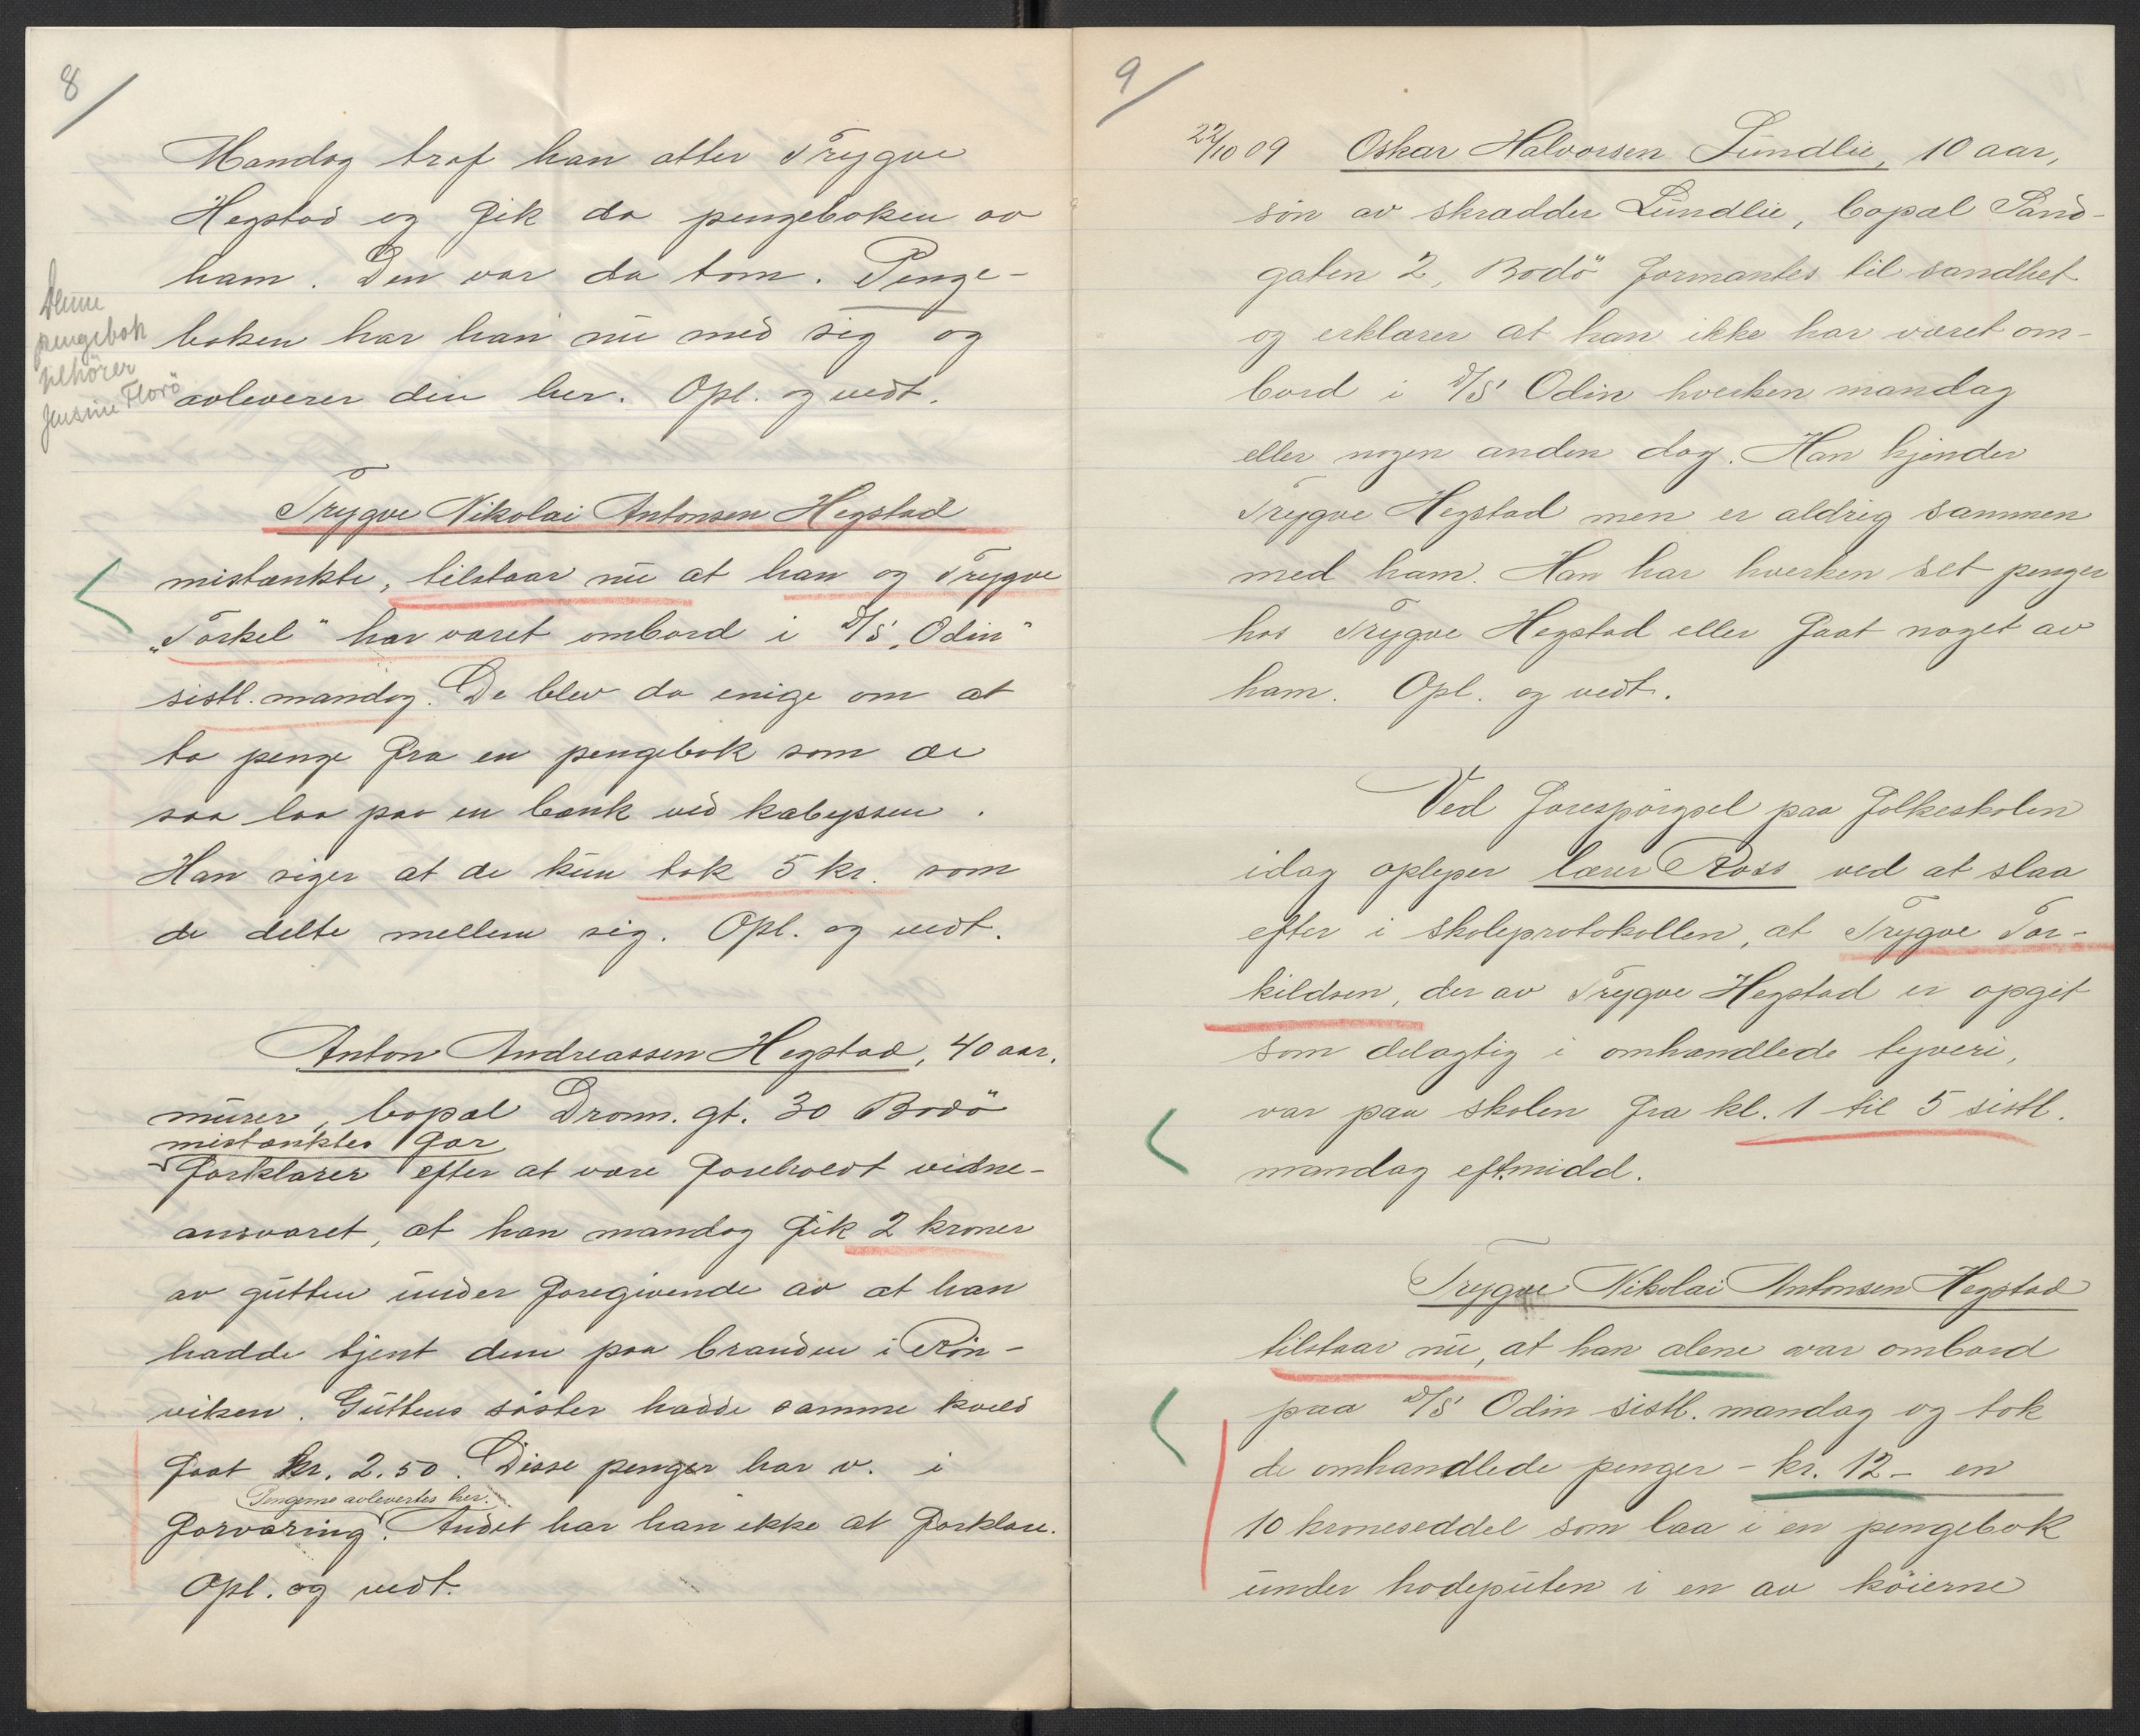 8/
Mandag traf han atter Trygve
Hegstad og fik da pengeboken av
ham. Den var da tom. Penge-
boken har han nu med sig og
avleverer den her. Opl. og vedt.
Denne
pengebok
tilhörer
Jensine Florö
Trygve Nikolai Antonsen Hegstad
mistænkte, tilstaar nu at han og Trygve
„Torkel“ har været ombord i D/S „Odin“
sistl. mandag. De blev da enige om at
ta penge fra en pengebok som de
saa laa paa en bænk ved kabyssen.
Han siger at de kun tok 5 kr. som
de delte mellem sig. Opl. og vedt.
Anton Andreassen Hegstad, 40 aar,
murer, bopæl Dronn. gt. 30 Bodö
mistænktes far
forklarer efter at være foreholdt vidne-
ansvaret, at han mandag fik 2 kroner
av gutten under foregivende av at han
hadde tjent dem paa branden i Rön-
viken. Guttens söster hadde samme kveld
faat kr. 2.50. Disse penger har v. i
Pengene avlevertes her.
forvaring. Andet har han ikke at forklare.
Opl. og vedt.
9/
22/10 09 Oskar Halvorsen Lundlie, 10 aar,
sön av skrædder Lundlie, bopæl Sand-
gaten 2, Bodö formantes til sandhet
og erklærer at han ikke har været om-
bord i D/S Odin hverken mandag
eller nogen anden dag. Han kjender
Trygve Hegstad men er aldrig sammen
med ham. Han har hverken set penger
hos Trygve Hegstad eller faat noget av
ham. Opl. og vedt.
Ved forespörgsel paa folkeskolen
idag oplyser lærer Ross ved at slaa
efter i skoleprotokollen, at Trygve Tor-
kildsen, der av Trygve Hegstad er opgit
som delagtig i omhandlede tyveri,
var paa skolen fra kl. 1 til 5 sistl.
mandag eft.midd.
Trygve Nikolai Antonsen Hegstad
tilstaar nu, at han alene var ombord
paa D/S Odin sistl. mandag og tok
de omhandlede penger - kr. 12 - en
10 kroneseddel som laa i en pengebok
under hodeputen i en av köierne